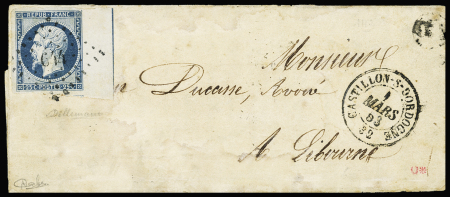 REPUB. FRANC.
25c. POSTES 25c.
Monsieur
Ducasse, Avoué
A Libourne
CASTILLON-S-DORDOGNE
4
MARS
53
32
Calves